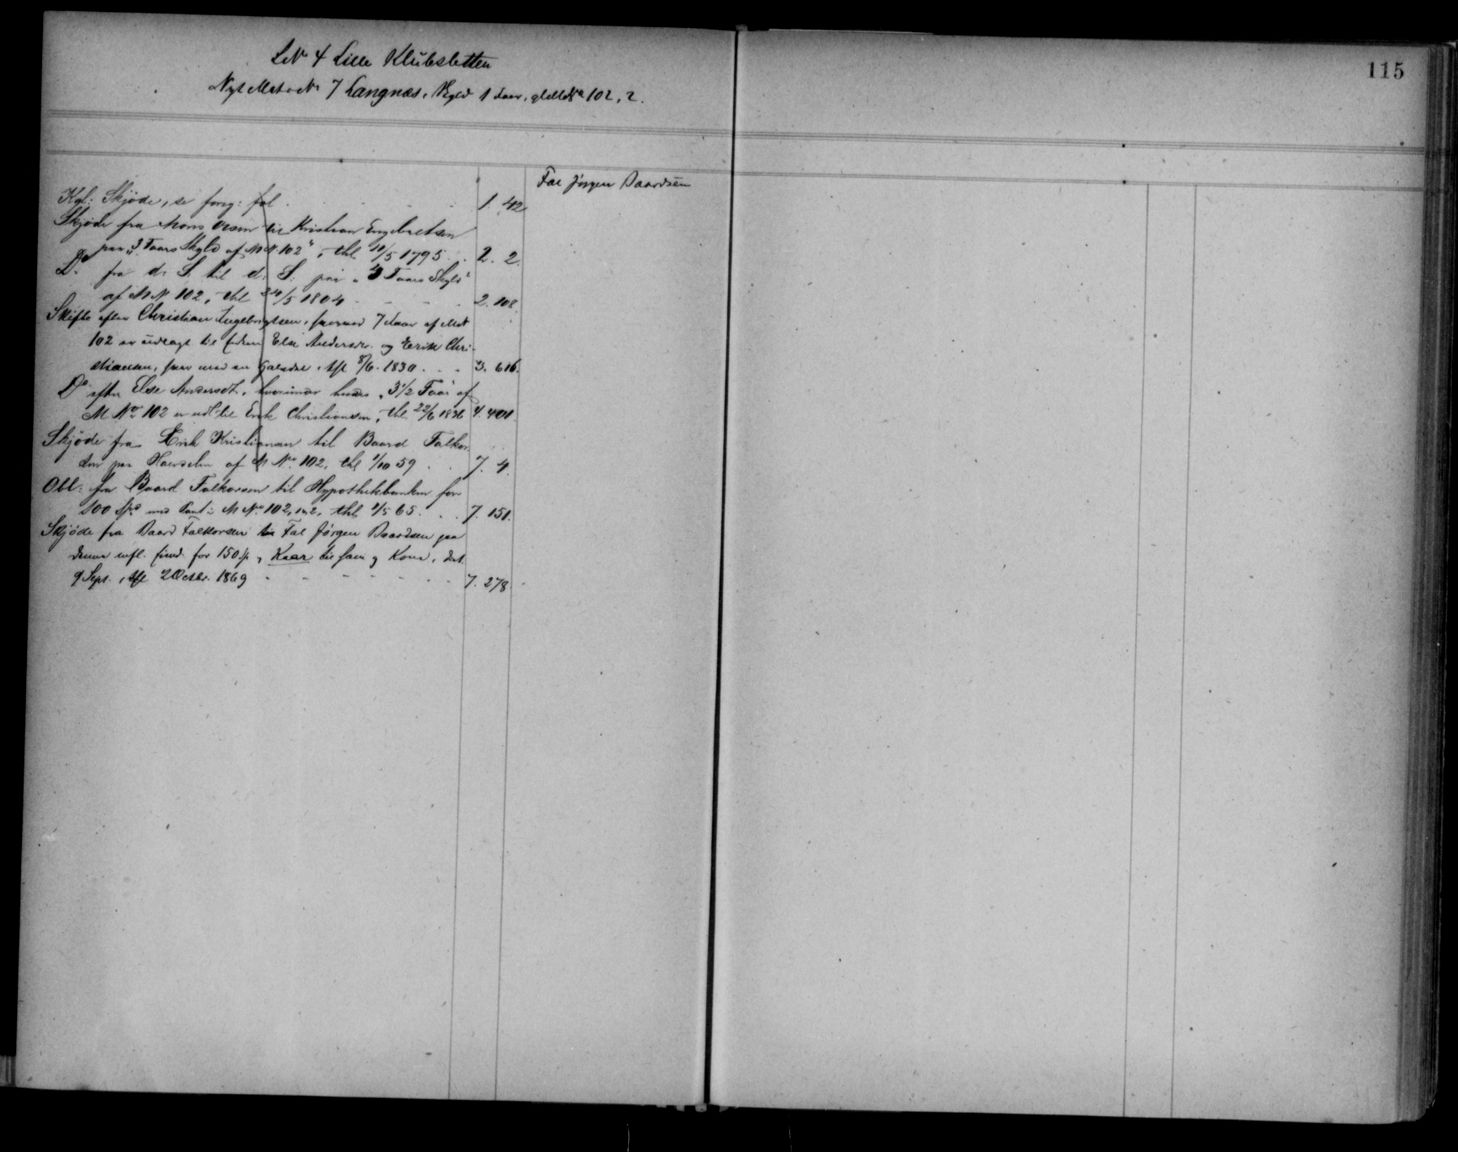 LN 4 Lille Klubsletten
115
Nyt Mat. No 7 Langnæs. Skyld 1 Daler, gl. M. No 102, 2.
Fal Jørgen Baardsen
Kgl: Skjøde, se forrig: fol. 1. 42.
Skjøde fra Mons Olsen til Kristian Engebretsen
paa 3 Faars Skyld af M N 102, thl 11/5 1795. 2. 2.
Do fra d. S. til d. S. paa 4 Faars Skyld
af M N 102, thl 24/5 1804 2. 108.
Skifte efter Christian Engebrigtsen, hvorved 7 Faar af Mat
102 er udlagt til Enken Else Andersdr. og Erik Chri-
stiansen, hver med en Halvdel, thl 8/6 1830. 3. 616.
Do efter Else Andersdt., hvorunder hendes 3 1/2 Faar af
M No 102 er udl. til Erik Christiansen, thl 22/6 1836 4. 401
Skjøde fra Erik Kristiansen til Baard Falkor
sen paa Halvdelen af M No 102, thl 1/10 59 7. 4.
Obl: fra Baard Falkorsen til Hypothekbanken for
100 Spd med Pant i M No 102, thl 1/5 65. 7. 151.
Skjøde fra Baard Falkorsen til Fal Jørgen Baardsen paa
denne for 150 og Kaar til ham og Kone, dat.
9 Sept., thl 2 Octbr. 1869 7. 278.